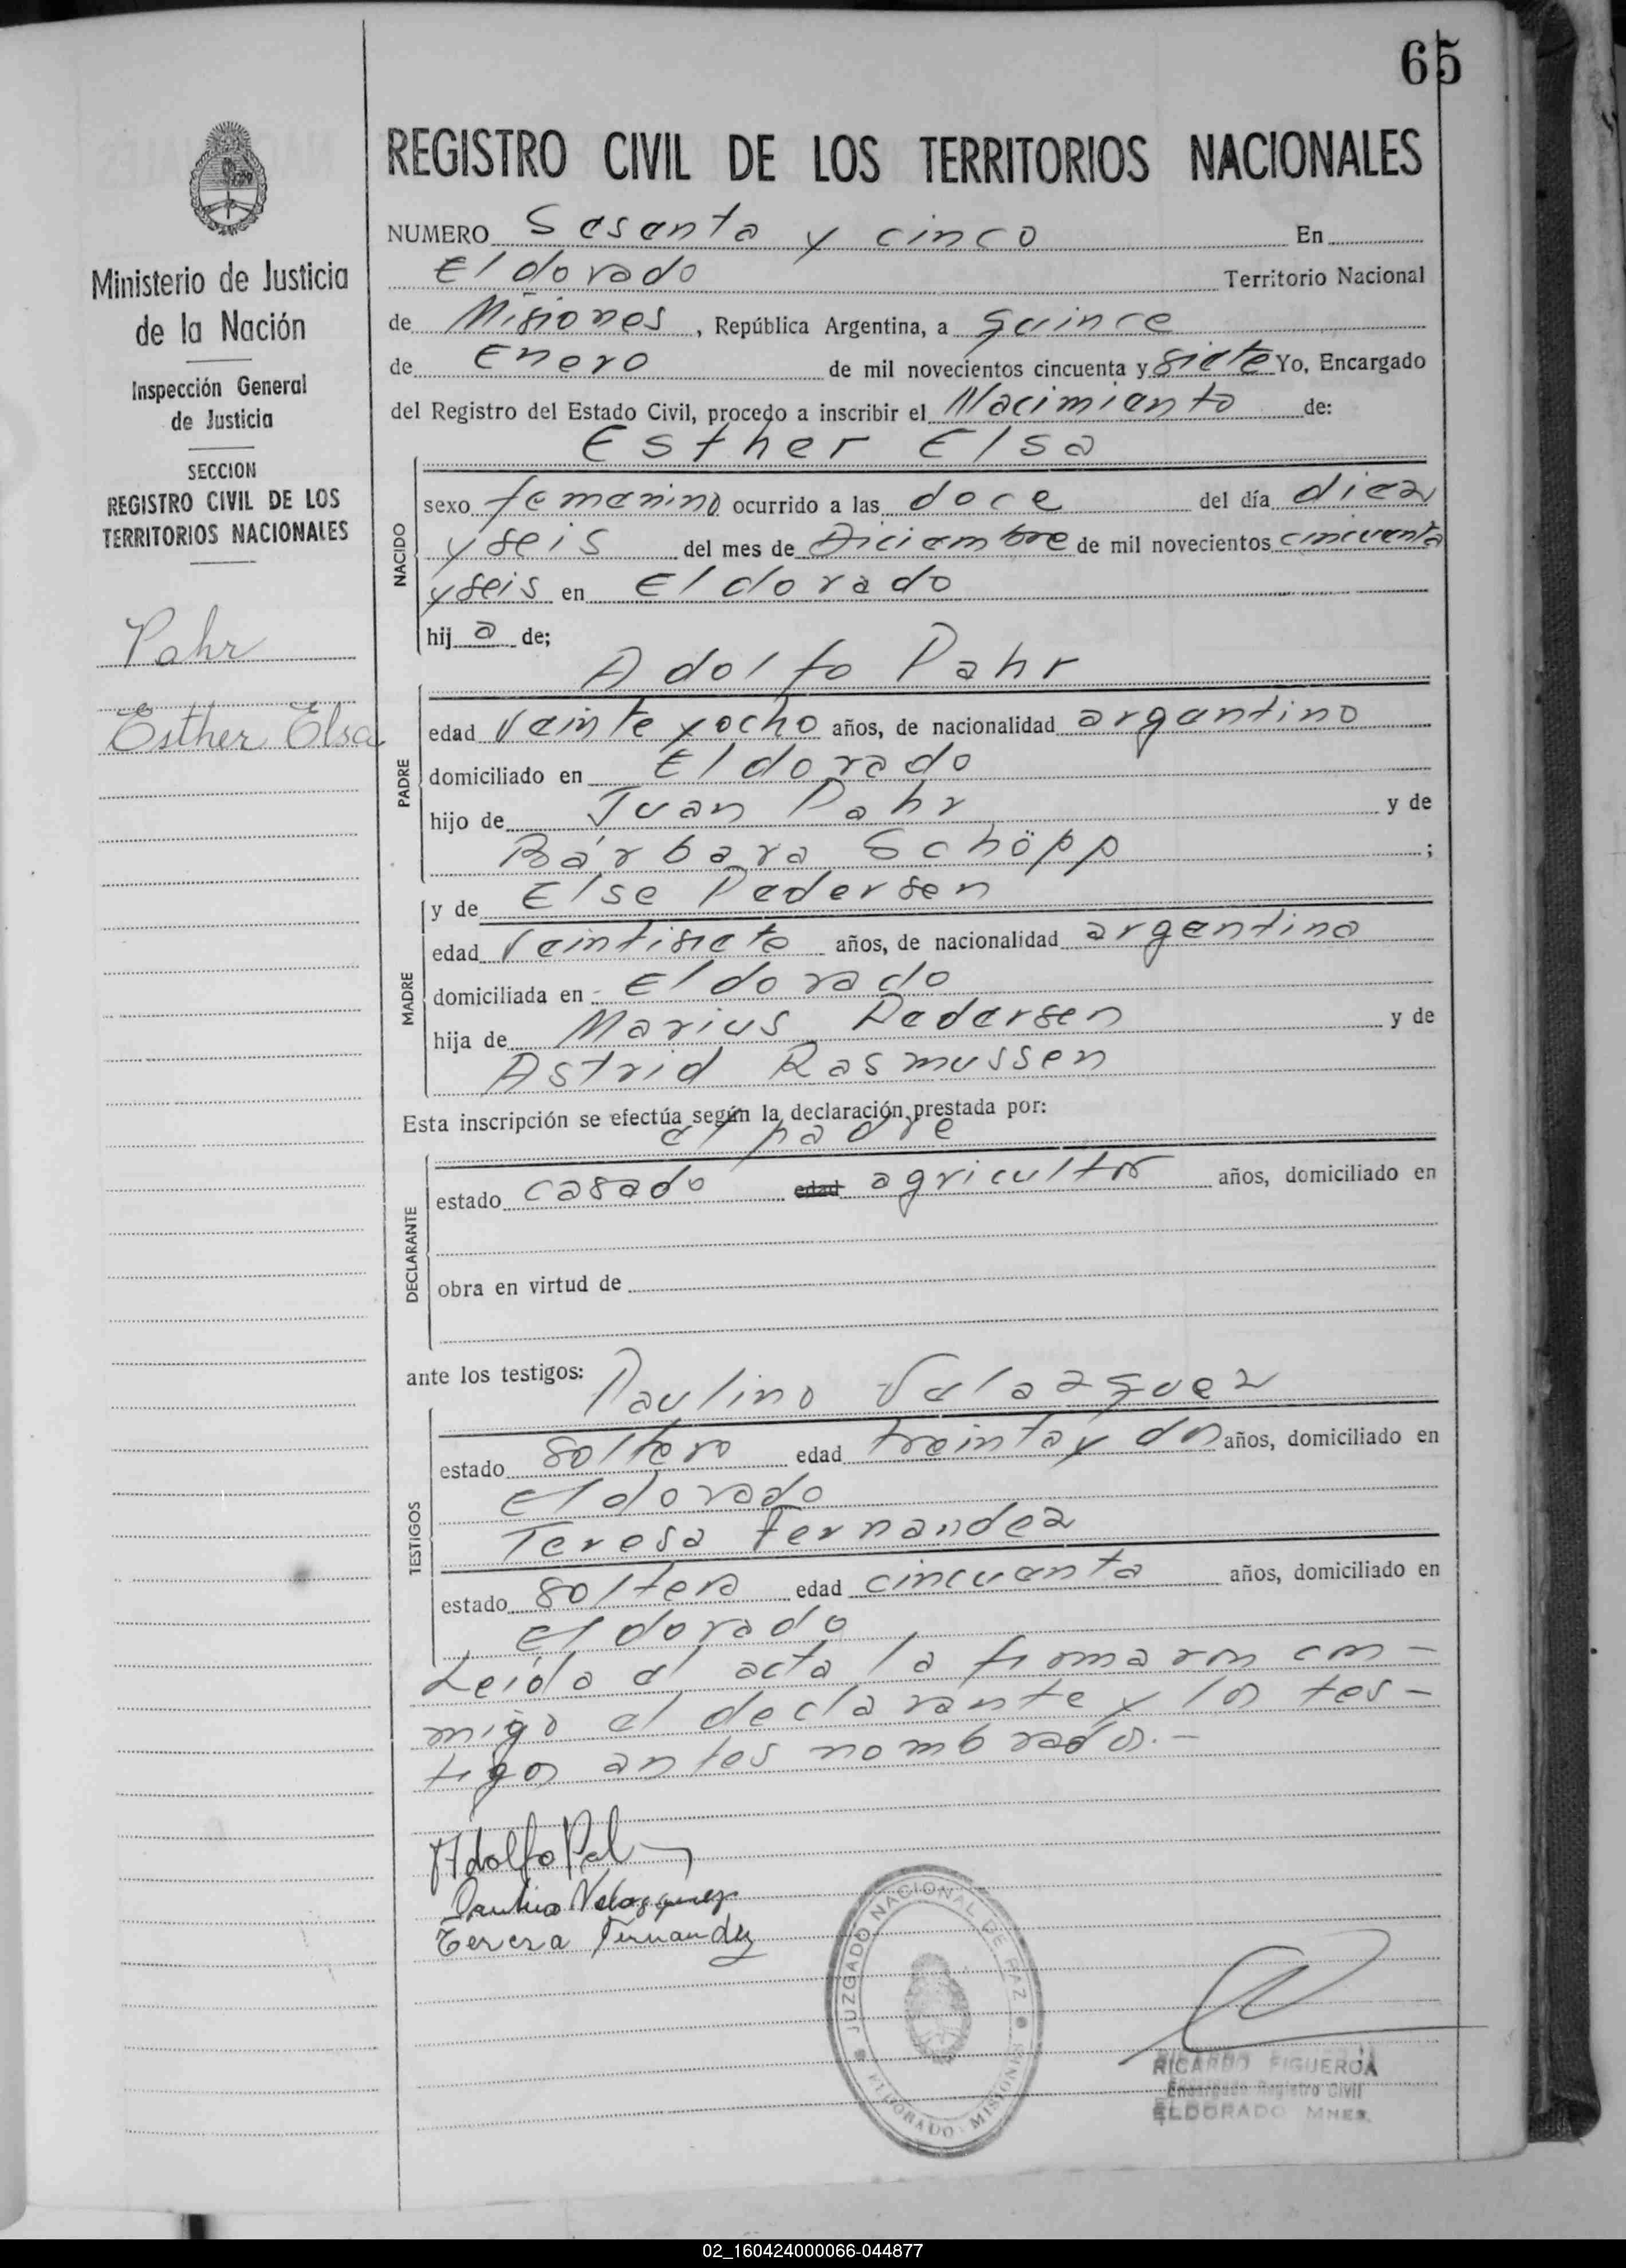 65
REGISTRO CIVIL DE LOS TERRITORIOS NACIONALES
Ministerio de Justicia
de la Nación
Inspección General
de Justicia
SECCION
REGISTRO CIVIL DE LOS
TERRITORIOS NACIONALES
Pahr
Esther Elsa
NUMERO Sesenta y cinco En
Eldorado Territorio Nacional
de Misiones, República Argentina, a quince
de Enero de mil novecientos cincuenta y siete Yo, Encargado
del Registro del Estado Civil, procedo a inscribir el Nacimiento de:
Esther Elsa
NACIDO
sexo femenino ocurrido a las doce del día diez
y seis del mes de Diciembre de mil novecientos cincuenta
y seis en Eldorado
hij a de;
Adolfo Pahr
PADRE
edad veinte y ocho años, de nacionalidad argentino
domiciliado en Eldorado
hijo de Juan Pahr y de
Bárbara Schöpp ;
y de Else Pedersen
MADRE
edad veintisiete años, de nacionalidad argentina
domiciliada en Eldorado
hija de Marius Pedersen y de
Astrid Rasmussen
Esta inscripción se efectúa según la declaración prestada por:
el padre
DECLARANTE
estado casado edad agricultor años, domiciliado en
obra en virtud de
ante los testigos: Paulino Velazquez
TESTIGOS
estado soltero edad treinta y dos años, domiciliado en
eldorado
Teresa Fernandez
estado soltera edad cincuenta años, domiciliado en
eldorado
Leída el acta la firmaron con-
migo el declarante y los tes-
tigos antes nombrados.-
Adolfo Pahr
Paulino Velazquez
Teresa Fernandez
JUZGADO NACIONAL DE PAZ
ELDORADO - MISIONES
RICARDO FIGUEROA
Encargado Registro Civil
ELDORADO MNES.
02_160424000066-044877